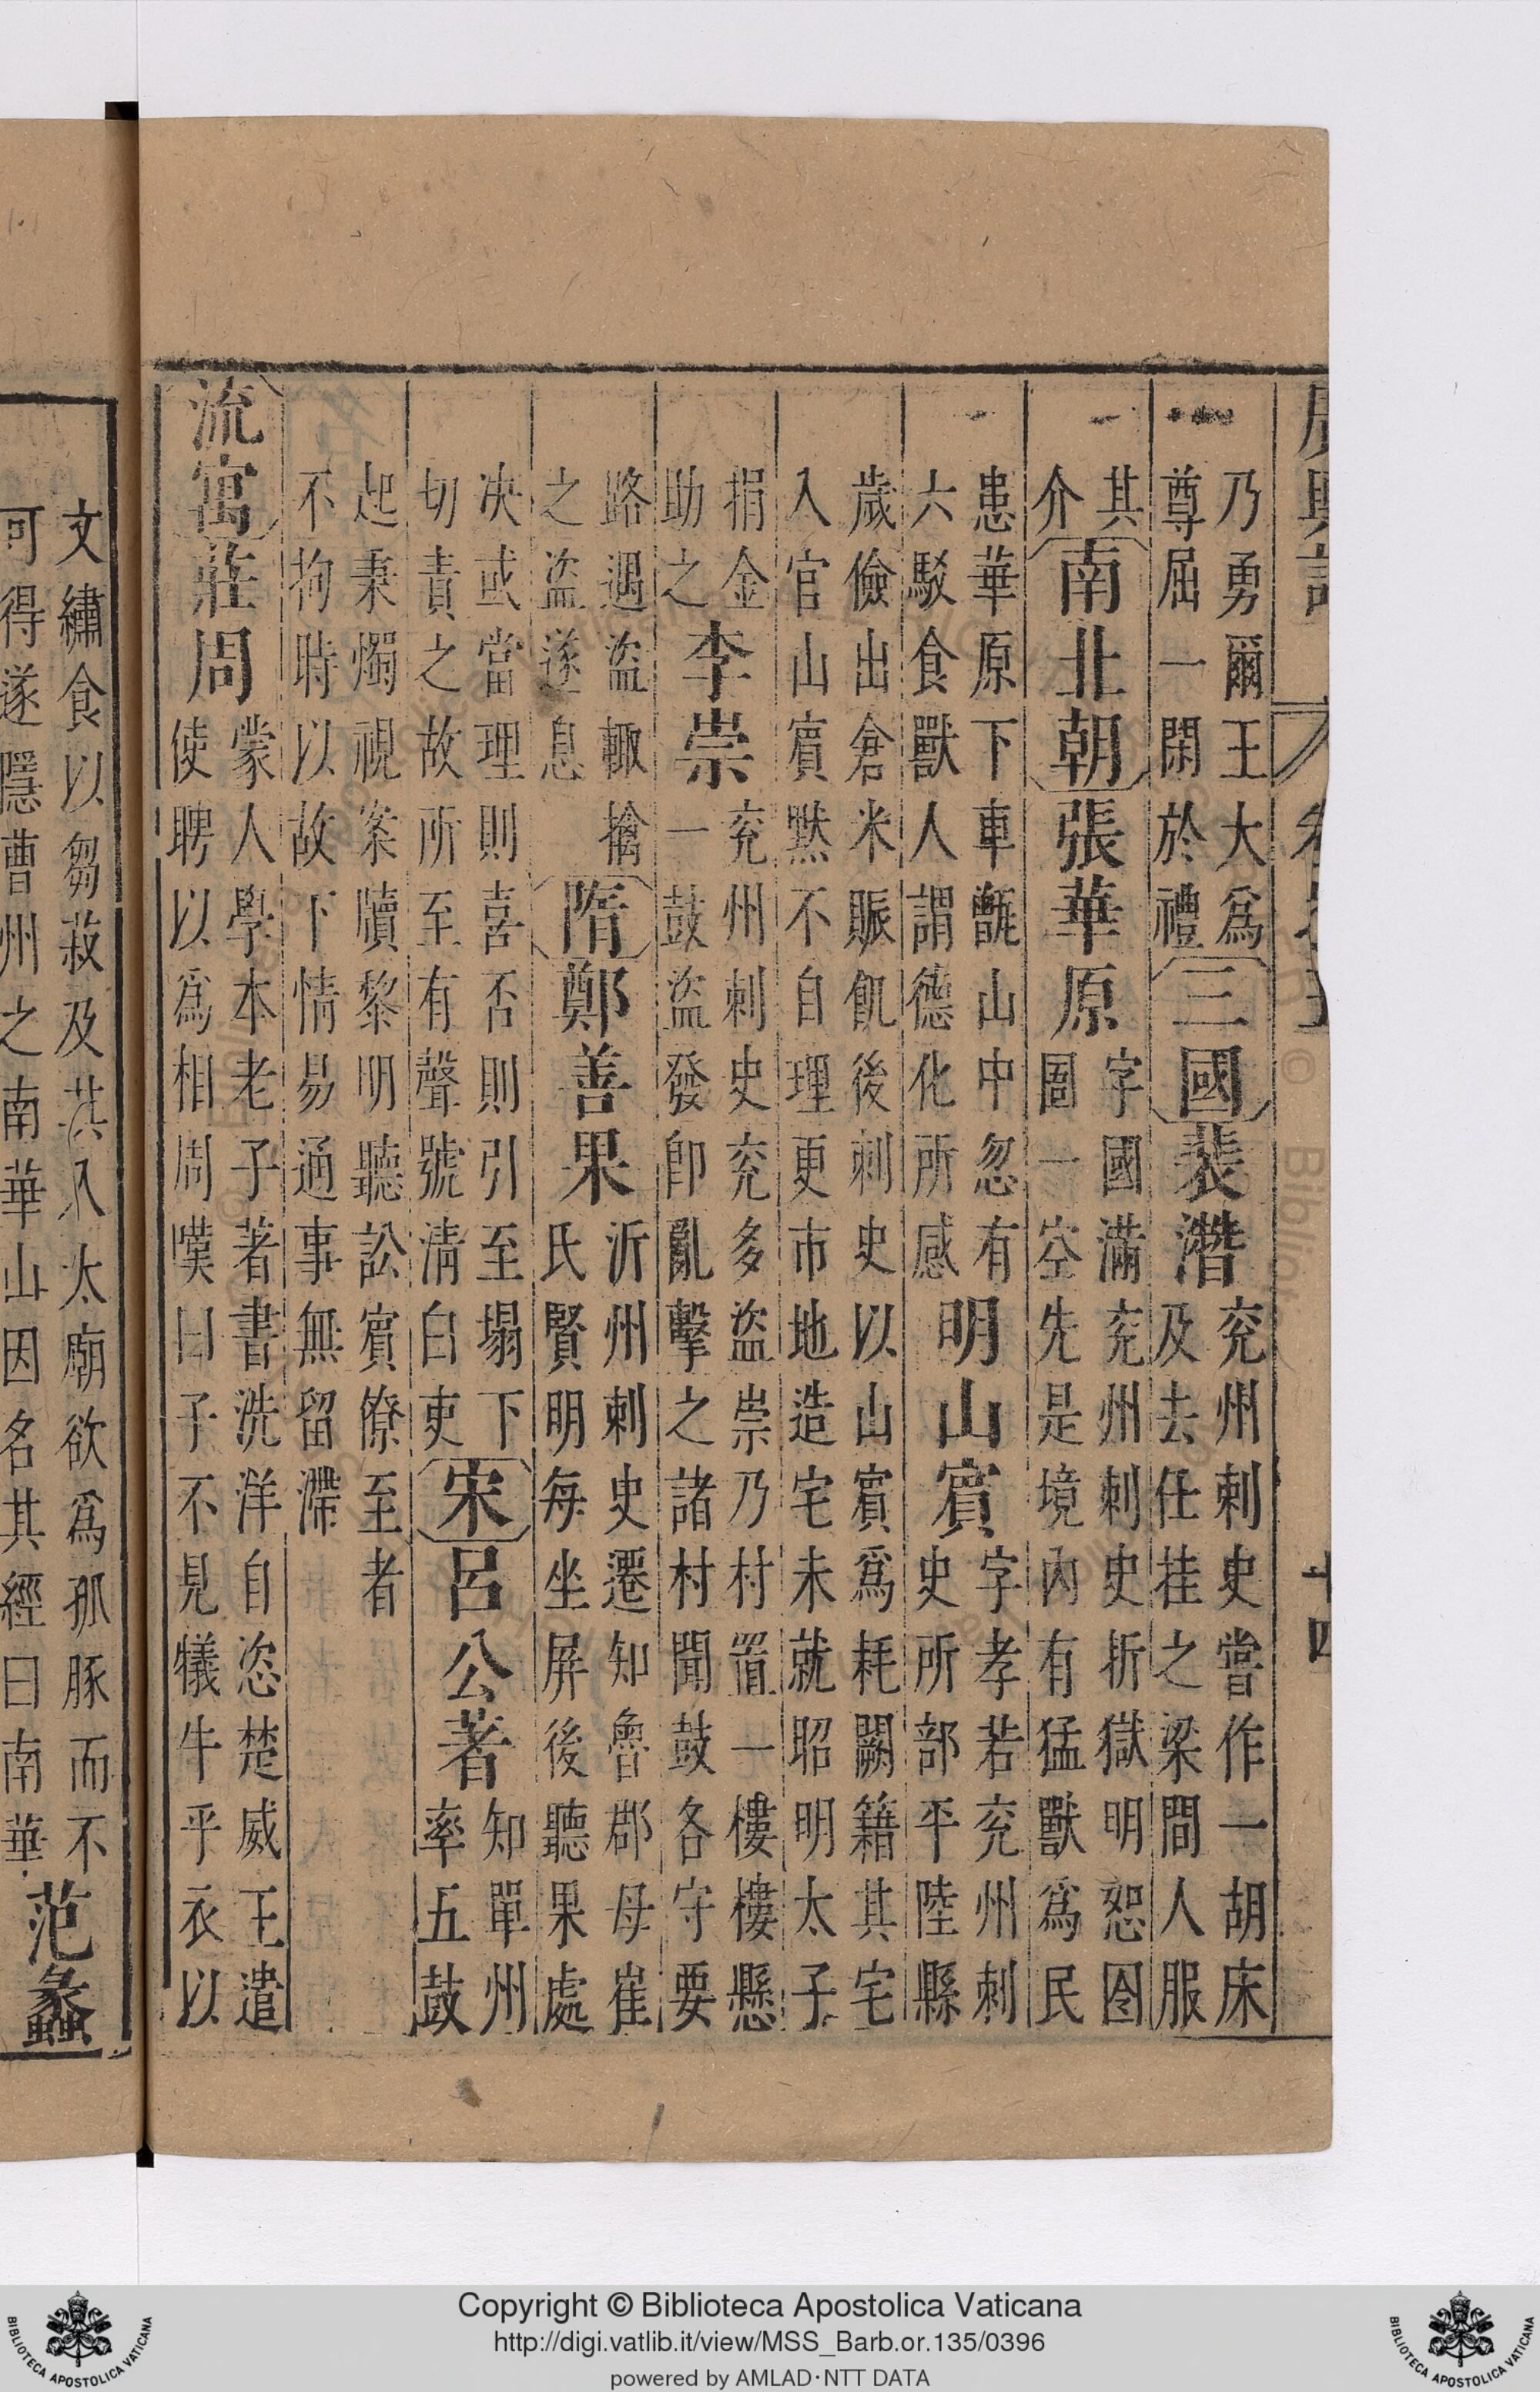 廣輿記 卷之五 十四
乃勇爾王大爲
尊屈一閑於禮
三國 裴潛
兖州刺史嘗作一胡床
及去任挂之梁間人服
其
介
南北朝 張華原
字國滿兖州刺史折獄明恕囹
圄一空先是境內有猛獸爲民
患華原下車甑山中忽有
六駁食獸人謂德化所感
明山賓
字孝若兖州刺
史所部平陸縣
歲儉出倉米賑飢後刺史以山賓爲耗闕籍其宅
入官山賓默不自理更市地造宅未就昭明太子
捐金
助之
李崇
兖州刺史兖多盜崇乃村置一樓樓懸
一鼓盜發卽亂擊之諸村聞鼓各守要
路遇盜輙擒
之盜遂息
隋 鄭善果
沂州刺史遷知魯郡母崔
氏賢明每坐屏後聽果處
决或當理則喜否則引至塌下
切責之故所至有聲號清白吏
宋 呂公著
知單州
率五鼓
起秉燭視案牘黎明聽訟賓僚至者
不拘時以故下情易通事無留滯
流寓 莊周
蒙人學本老子著書洸洋自恣楚威王遣
使聘以爲相周嘆曰子不見犧牛乎衣以
文繡食以芻菽及其入太廟欲爲孤豚而不
可得遂隱曹州之南華山因名其經曰南華
范蠡
Copyright © Biblioteca Apostolica Vaticana
http://digi.vatlib.it/view/MSS_Barb.or.135/0396
powered by AMLAD·NTT DATA
BIBLIOTECA APOSTOLICA VATICANA
BIBLIOTECA APOSTOLICA VATICANA